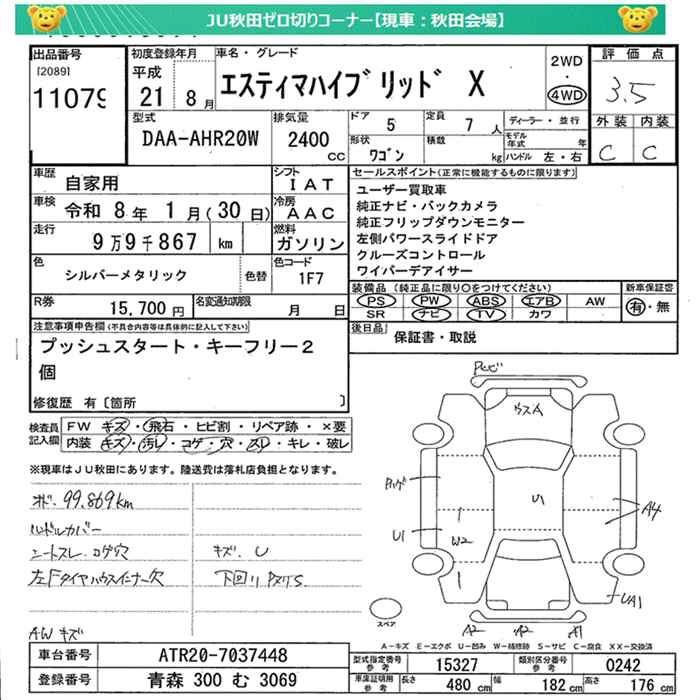 JU秋田ゼロ切りコーナー【現車：秋田会場】
出品番号
[2089]
11079
初度登録年月
平成
21 8月
車名・グレード
エスティマハイブリッド X
2WD
・
4WD
評価点
3.5
外装 内装
C C
型式
DAA-AHR20W
排気量
2400
CC
ドア 5
定員 7 人
形状 ワゴン
積載 kg
ディーラー・並行
モデル年式 年
ハンドル 左・右
車歴 自家用
車検 令和 8年 1月(30日)
走行 9万9千867 km
シフト IAT
冷房 AAC
燃料 ガソリン
色 シルバーメタリック
色替
色コード 1F7
R券 15,700円
名変通知期限 月 日
セールスポイント(正常に機能するものに限ります)
ユーザー買取車
純正ナビ・バックカメラ
純正フリップダウンモニター
左側パワースライドドア
クルーズコントロール
ワイパーデアイサー
装備品 (純正品に限り○をつけてください)
PS PW ABS エアB AW
SR ナビ TV カワ
新車保証書
有・無
後日品 保証書・取説
注意事項申告欄(不具合内容等は具体的に記入して下さい)
プッシュスタート・キーフリー2
個
修復歴 有〔箇所 〕
検査員記入欄
FW キズ・飛石・ヒビ割・リペア跡・×要
内装 キズ・汚レ・コゲ・穴・スレ・キレ・破レ
※現車はJU秋田にあります。陸送費は落札店負担となります。
オド.99.869km
ハンドルカバー
シートスレ.コゲ穴
左Fタイヤハウスインナー欠
AWキズ
キズ.U
下回りサビS
ウスA
U1
A4
U1
W2
UA1
A2
A2
X1
スペア
A-キズ E-エクボ U-凹み W-補修跡 S-サビ C-腐食 XX-交換済
車台番号 ATR20-7037448
登録番号 青森 300 む 3069
型式指定番号 参考 15327
類別区分番号 参考 0242
車庫証明用 参考
長さ 480 cm
幅 182 cm
高さ 176 cm